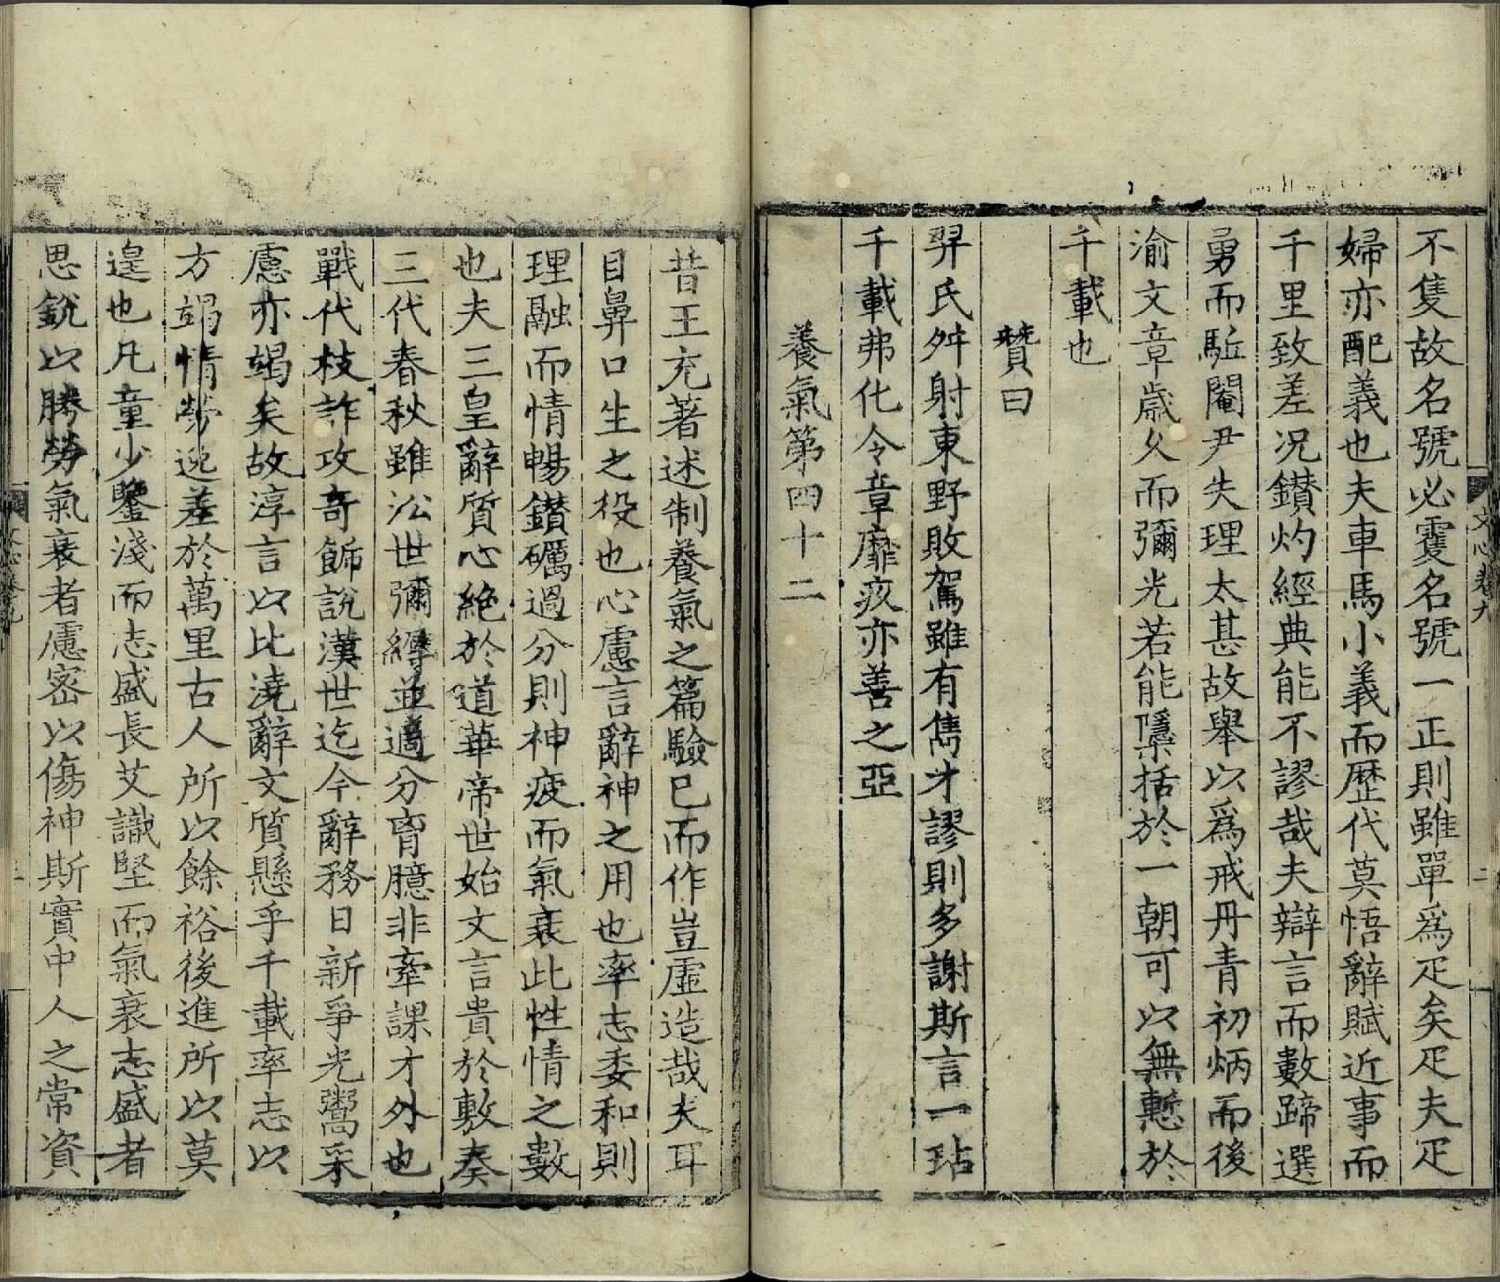 不隻故名號必䨥名號一正則雖單爲疋矣疋夫疋
婦亦配義也夫車馬小義而歷代莫悟辭賦近事而
千里致差况鑚灼經典能不謬哉夫辯言而數蹄選
勇而駈閹尹失理太甚故舉以爲戒丹青初炳而後
渝文章歲乆而彌光若能隱括於一朝可以無慙於
千載也
贊曰
羿氏舛射東野敗駕雖有雋才謬則多謝斯言一玷
千載弗化令章靡疚亦善之亞
養氣第四十二
文心卷九
二
昔王充著述制養氣之篇驗已而作豈虚造哉夫耳
目鼻口生之役也心慮言辭神之用也率志委和則
理融而情暢鑚礪過分則神疲而氣衰此性情之數
也夫三皇辭質心絶於道華帝世始文言貴於敷奏
三代春秋雖㳂世彌縟並適分胷臆非牽課才外也
戰代枝詐攻奇飾說漢世迄今辭務日新爭光鬻采
慮亦竭矣故淳言以比澆辭文質懸乎千載率志以
方竭情勞逸差於萬里古人所以餘裕後進所以莫
遑也凡童少鑒淺而志盛長艾識堅而氣衰志盛者
思銳以勝勞氣衰者慮密以傷神斯實中人之常資